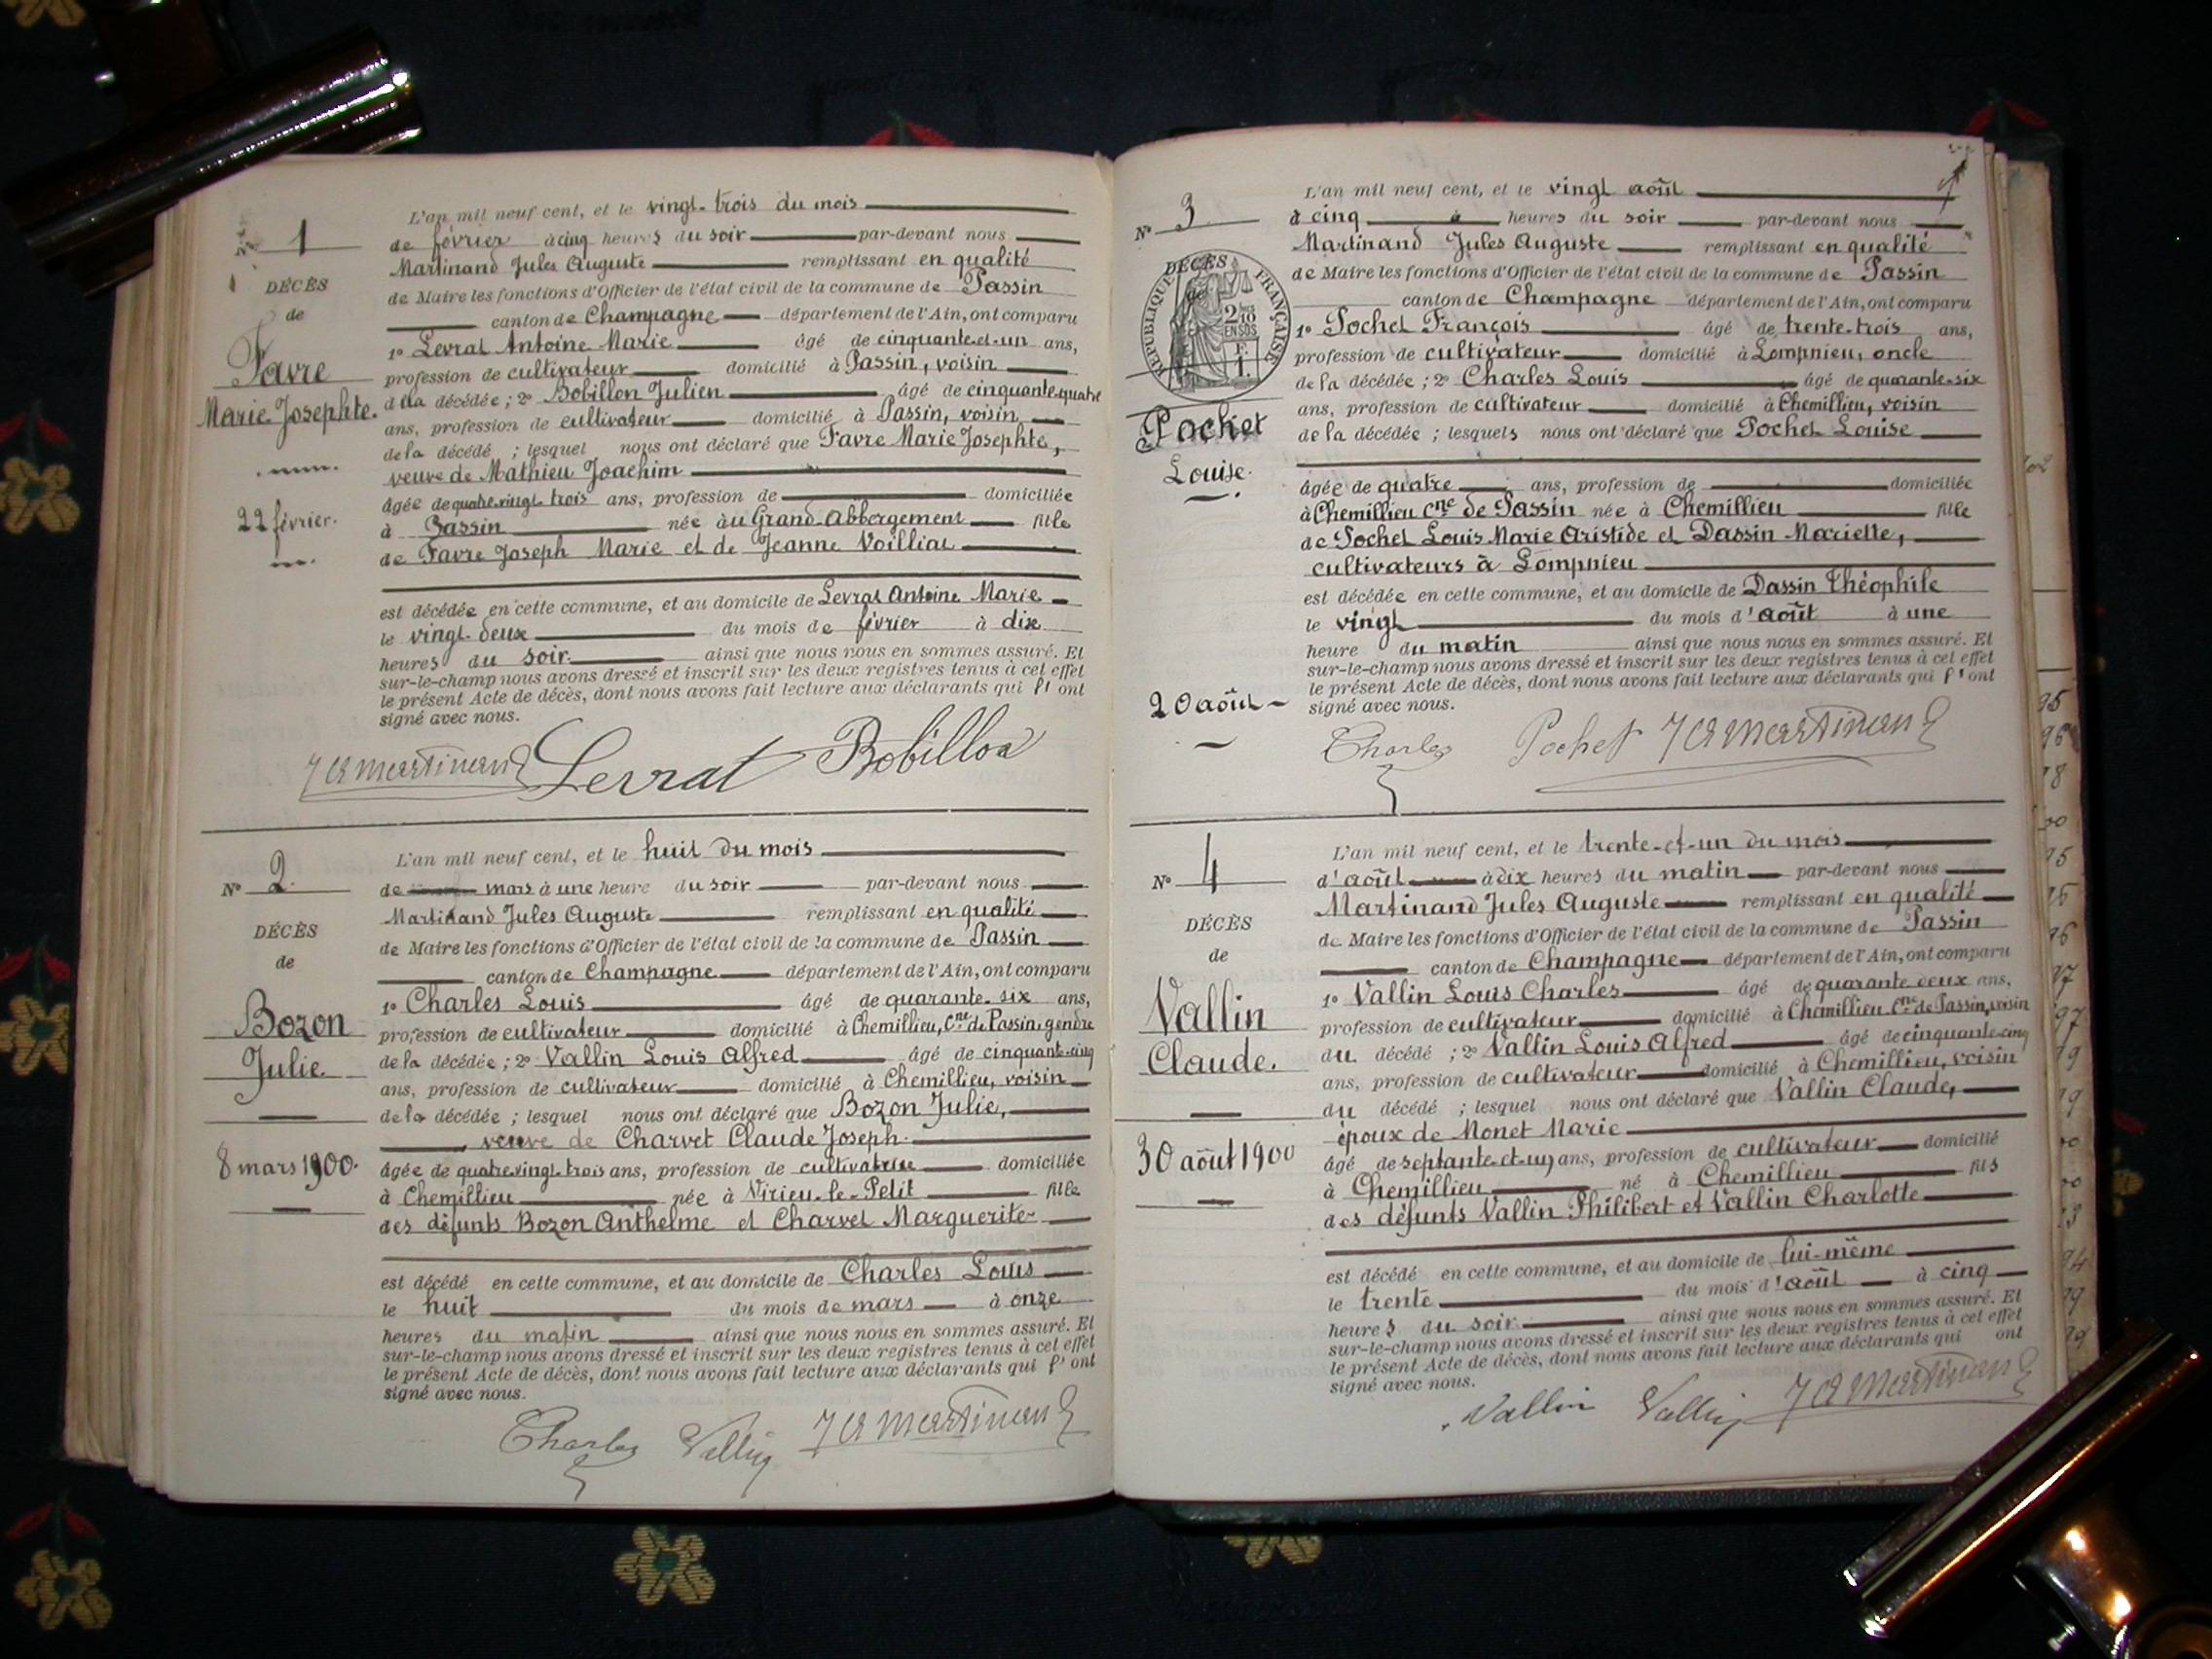 N° 1
DÉCÈS
de
Favre
Marie Josephte.
22 février.
L'an mil neuf cent, et le vingt-trois du mois
de février à cinq heures du soir par-devant nous
Martinand Jules Auguste remplissant en qualité
de Maire les fonctions d'Officier de l'état civil de la commune de Passin
canton de Champagne département de l'Ain, ont comparu
1° Levrat Antoine Marie âgé de cinquante-et-un ans,
profession de cultivateur domicilié à Passin, voisin
de la décédée ; 2° Bobillon Julien âgé de cinquante-quatre
ans, profession de cultivateur domicilié à Passin, voisin
de la décédé ; lesquel nous ont déclaré que Favre Marie Josephte,
veuve de Mathieu Joachim
âgée de quatre-vingt-trois ans, profession de domiciliée
à Passin née au Grand-Abbergement fille
de Favre Joseph Marie et de Jeanne Voilliat
est décédée en cette commune, et au domicile de Levrat Antoine Marie
le vingt-deux du mois de février à dix
heures du soir. ainsi que nous nous en sommes assuré. Et
sur-le-champ nous avons dressé et inscrit sur les deux registres tenus à cet effet
le présent Acte de décès, dont nous avons fait lecture aux déclarants qui l'ont
signé avec nous.
J A Martinand Levrat Bobillon
N° 2
DÉCÈS
de
Bozon
Julie.
8 mars 1900.
L'an mil neuf cent, et le huit du mois
de mars à une heure du soir par-devant nous
Martinand Jules Auguste remplissant en qualité
de Maire les fonctions d'Officier de l'état civil de la commune de Passin
canton de Champagne département de l'Ain, ont comparu
1° Charles Louis âgé de quarante-six ans,
profession de cultivateur domicilié à Chemillieu, Cne de Passin, gendre
de la décédée ; 2° Vallin Louis Alfred âgé de cinquante-cinq
ans, profession de cultivateur domicilié à Chemillieu, voisin
de la décédée ; lesquel nous ont déclaré que Bozon Julie,
veuve de Charvet Claude Joseph.
âgée de quatre-vingt-trois ans, profession de cultivatrice domiciliée
à Chemillieu née à Virieu-le-Petit fille
des défunts Bozon Anthelme et Charvet Marguerite
est décédé en cette commune, et au domicile de Charles Louis
le huit du mois de mars à onze
heures du matin ainsi que nous nous en sommes assuré. Et
sur-le-champ nous avons dressé et inscrit sur les deux registres tenus à cet effet
le présent Acte de décès, dont nous avons fait lecture aux déclarants qui l'ont
signé avec nous.
Charles Vallin J A Martinand
N° 3
DÉCÈS
RÉPUBLIQUE FRANÇAISE
2/10 EN SUS
F. 1.
Pochet
Louise.
20 août
L'an mil neuf cent, et le vingt août
à cinq heures du soir par-devant nous
Martinand Jules Auguste remplissant en qualité
de Maire les fonctions d'Officier de l'état civil de la commune de Passin
canton de Champagne département de l'Ain, ont comparu
1° Pochet François âgé de trente-trois ans,
profession de cultivateur domicilié à Lompnieu, oncle
de la décédée ; 2° Charles Louis âgé de quarante-six
ans, profession de cultivateur domicilié à Chemillieu, voisin
de la décédée ; lesquels nous ont déclaré que Pochet Louise
âgée de quatre ans, profession de domiciliée
à Chemillieu Cne de Passin née à Chemillieu fille
de Pochet Louis Marie Aristide et Dassin Mariette,
cultivateurs à Lompnieu
est décédée en cette commune, et au domicile de Dassin Théophile
le vingt du mois d'août à une
heure du matin ainsi que nous nous en sommes assuré. Et
sur-le-champ nous avons dressé et inscrit sur les deux registres tenus à cet effet
le présent Acte de décès, dont nous avons fait lecture aux déclarants qui l'ont
signé avec nous.
Charles Pochet J A Martinand
N° 4
DÉCÈS
de
Vallin
Claude.
30 août 1900
L'an mil neuf cent, et le trente-et-un du mois
d'août à dix heures du matin par-devant nous
Martinand Jules Auguste remplissant en qualité
de Maire les fonctions d'Officier de l'état civil de la commune de Passin
canton de Champagne département de l'Ain, ont comparu
1° Vallin Louis Charles âgé de quarante deux ans,
profession de cultivateur domicilié à Chemillieu Cne de Passin, voisin
du décédé ; 2° Vallin Louis Alfred âgé de cinquante-cinq
ans, profession de cultivateur domicilié à Chemillieu, voisin
du décédé ; lesquel nous ont déclaré que Vallin Claude,
époux de Monet Marie
âgé de septante-et-un ans, profession de cultivateur domicilié
à Chemillieu né à Chemillieu fils
des défunts Vallin Philibert et Vallin Charlotte
est décédé en cette commune, et au domicile de lui-même
le trente du mois d'août à cinq
heures du soir. ainsi que nous nous en sommes assuré. Et
sur-le-champ nous avons dressé et inscrit sur les deux registres tenus à cet effet
le présent Acte de décès, dont nous avons fait lecture aux déclarants qui ont
signé avec nous.
Vallin Vallin J A Martinand